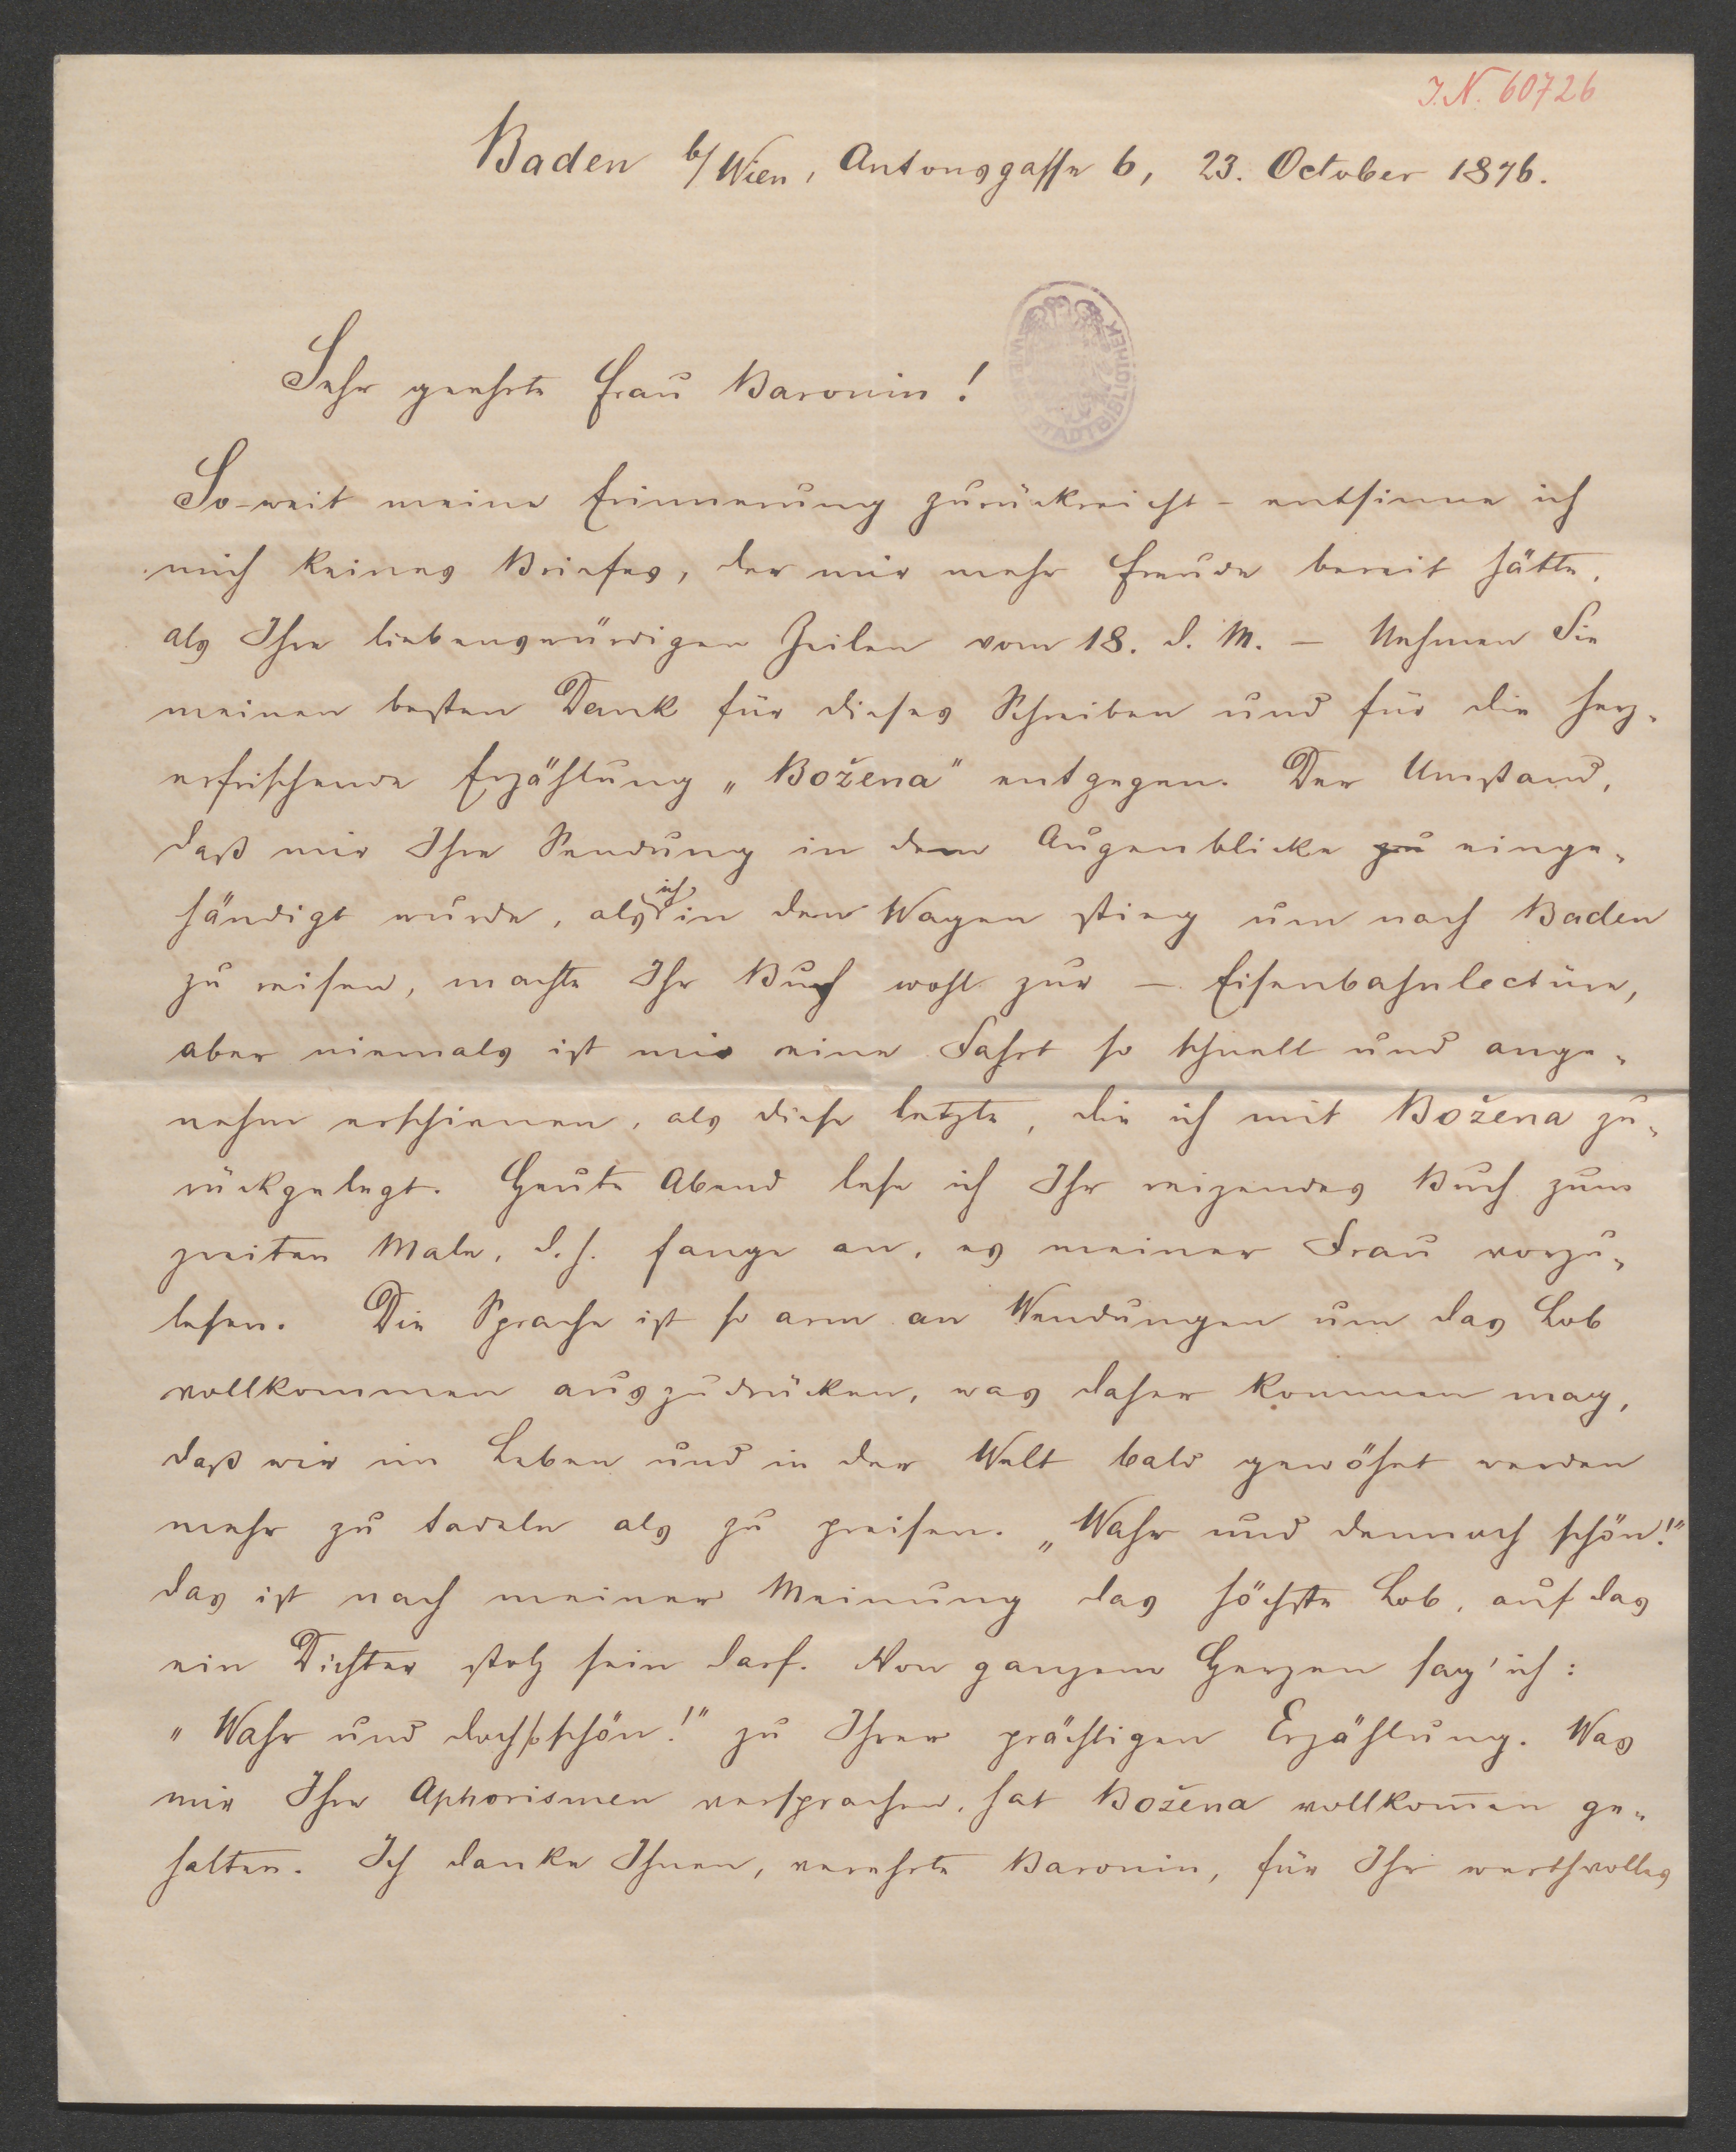 I.N. 60726
Baden b/Wien, Antonsgasse 6, 23. October 1876.
STADTBIBLIOTHEK
Sehr geehrte Frau Baronin!
So weit meine Erinnerung zurückreicht – entsinne ich
mich keines Briefes, der mir mehr Freude bereit hätte,
als Ihre liebenswürdigen Zeilen vom 18. d. M. – Nehmen Sie
meinen besten Dank für dieses Schreiben und für die herz-
erfrischende Erzählung „Božena" entgegen. Der Umstand,
daß mir Ihre Sendung in dem Augenblicke zu einge-
händigt wurde, als ich in den Wagen stieg um nach Baden
zu reisen, machte Ihr Buch wohl zur – Eisenbahnlectüre,
aber niemals ist mir eine Fahrt so schnell und ange-
nehm erschienen, als diese letzte, die ich mit Božena zu-
rückgelegt. Heute Abend lese ich Ihr reizendes Buch zum
zweiten Male, d. h. fange an, es meiner Frau vorzu-
lesen. Die Sprache ist so arm an Wendungen um das Lob
vollkommen auszudrücken, was daher kommen mag,
daß wir im Leben und in der Welt bald gewöhnt werden
mehr zu tadeln als zu preisen. „Wahr und dennoch schön!"
das ist nach meiner Meinung das höchste Lob, auf das
ein Dichter stolz sein darf. Von ganzem Herzen sag' ich:
„Wahr und doch so schön!" zu Ihrer prächtigen Erzählung. Was
mir Ihre Aphorismen versprachen, hat Božena vollkom̄en ge-
halten. Ich danke Ihnen, verehrte Baronin, für Ihr werthvolles